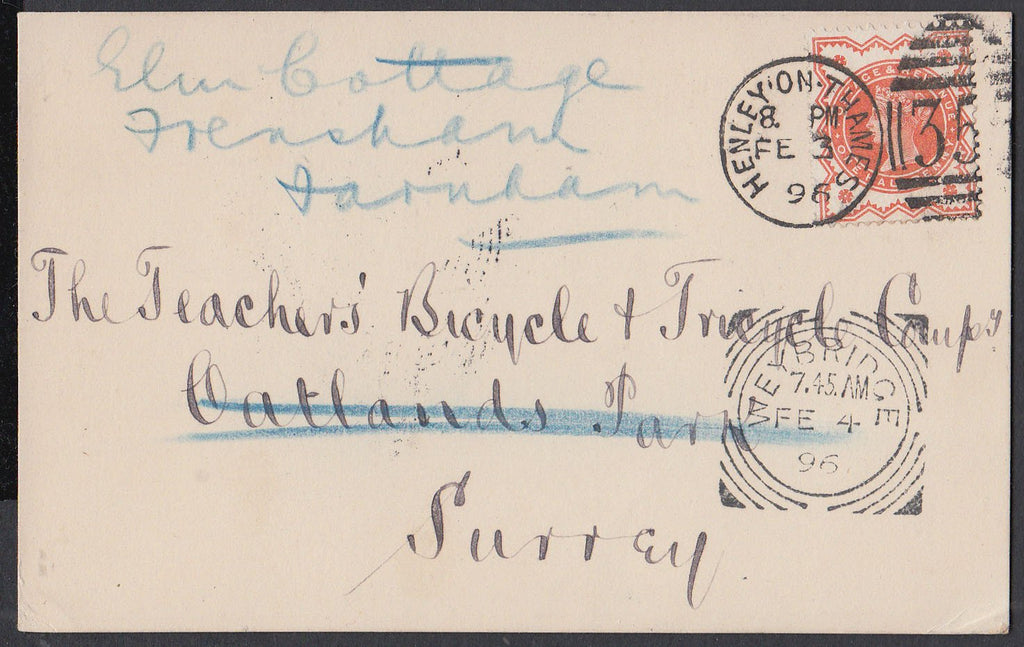 Elm Cottage
Frensham
Farnham
HENLEY·ON·THAMES
8 PM
FE 3
96
The Teachers' Bicycle & Tricycle Compy
Oatlands Park
Surrey
WEYBRIDGE
7.45.AM
FE 4
96